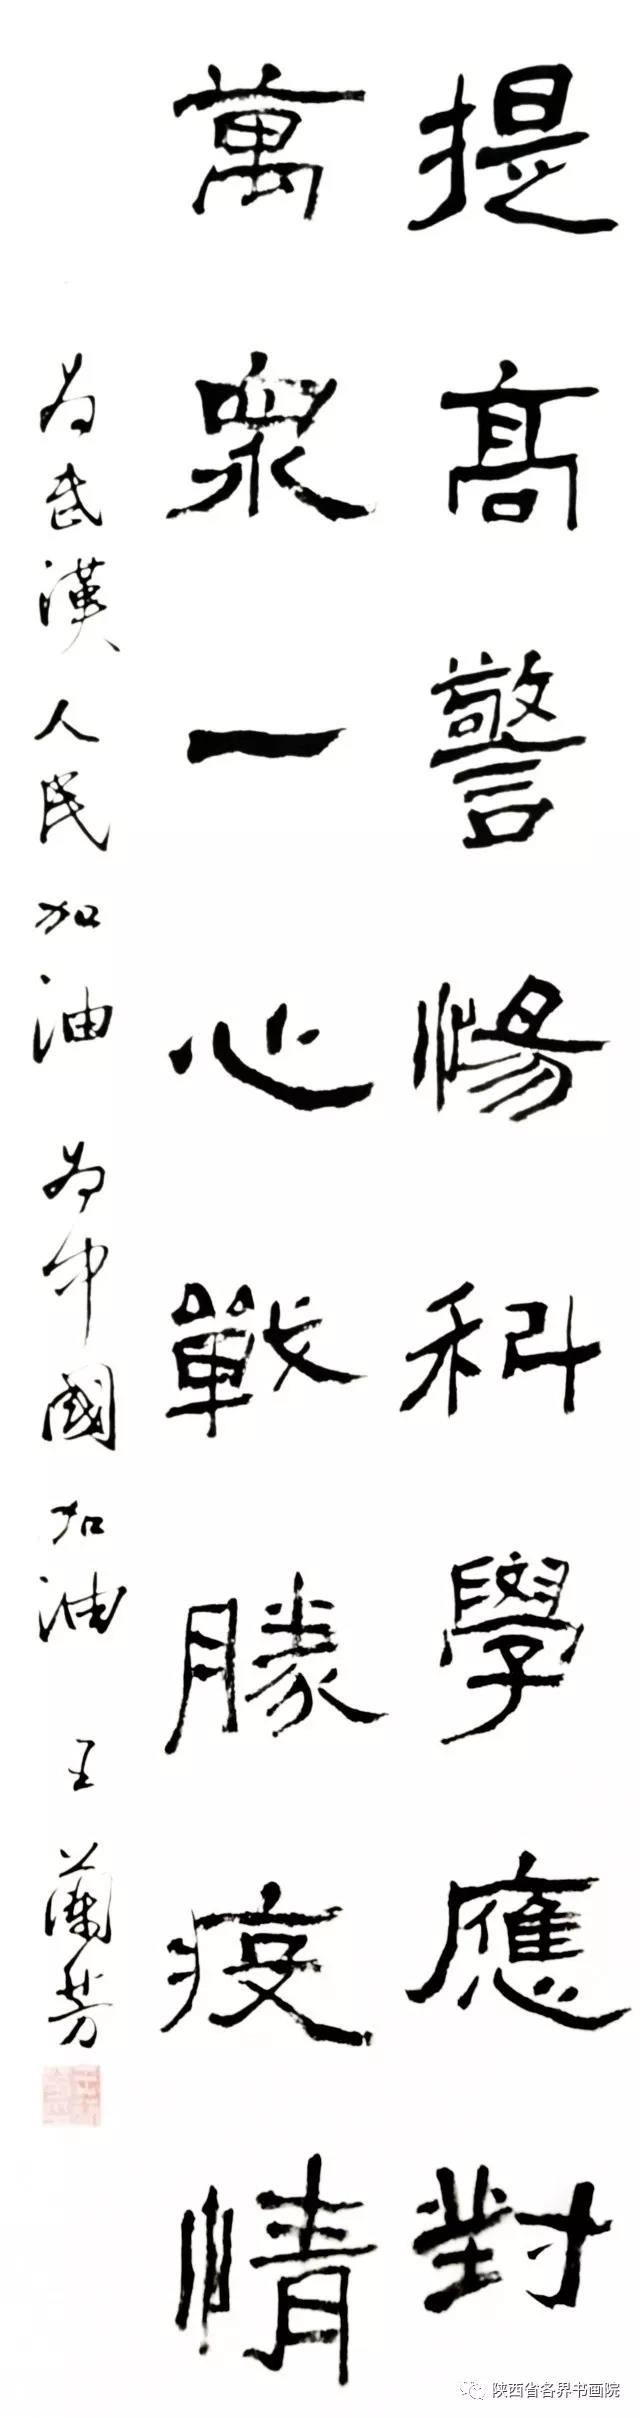 提高警惕科學應對
萬眾一心戰勝疫情
为武漢人民加油 为中國加油 王蘭芳
陕西省各界书画院